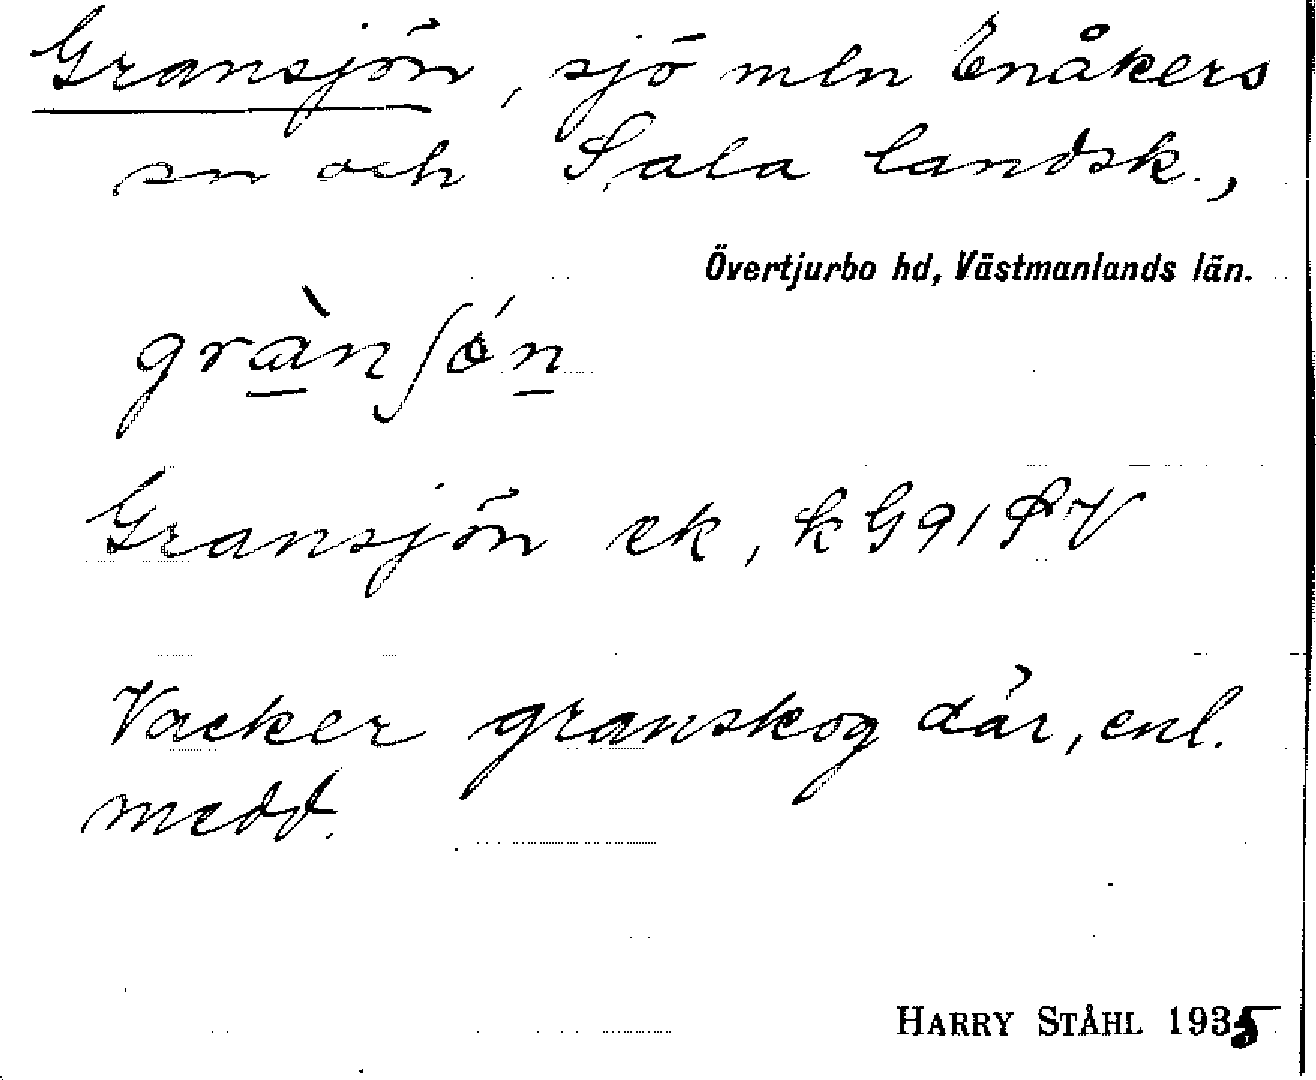 Gransjön, sjö mln Enåkers
sn och Sala landsk.,
Övertjurbo hd, Västmanlands län.
grànʃón
Gransjön ek, k G91SV
Vacker granskog där, enl.
medd.
HARRY STÅHL 1935